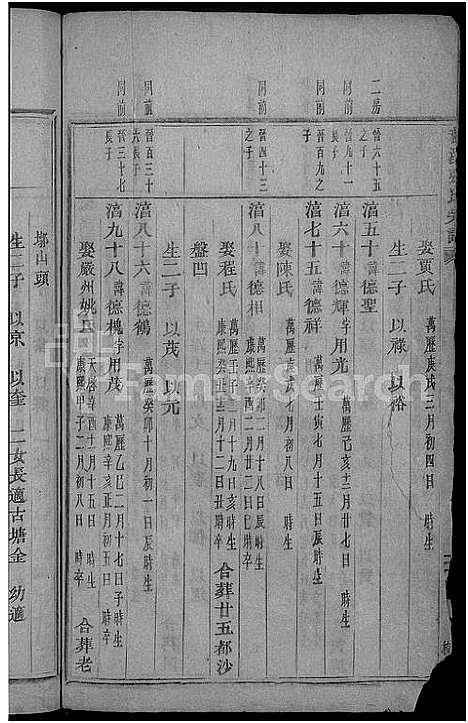 娶賈氏 萬歷庚戌三月初四日 時生
生二子 以祿 以裕
二房 晉六十五之子
涪六十一諱德聖
同前 晉九十一長子
涪六十 諱德輝 字用光 萬歷己亥十二月廿七日 時生
同前 晉百十九之子
涪七十五諱德祥 萬歷壬寅七月十五日辰時生
娶陳氏 萬歷庚 月初八日 時生
同前 晉四十三之子
涪八十一諱德相 萬歷癸卯二月十八日辰時生
娶程氏 萬歷壬子三月十九日亥時生 康熙癸亥十二月十二日丑時卒 合葬廿五都沙
盤凹
生二子 以茂 以元
同前 晉百三十六長子
涪八十六諱德鶴 萬歷癸卯十月初一日辰時生
同前 晉三十七長子
涪九十八諱德槐 字用茂 萬歷乙巳二月十七日子時生 康熙辛亥正月初五日 時卒
娶嚴州姚氏 天啓辛酉十二月十五日 時生 康熙甲子二月初八日 時卒 合葬老
塢山頭
生二子 以京 以奎 二女長適古塘金 幼適
FamilySearch